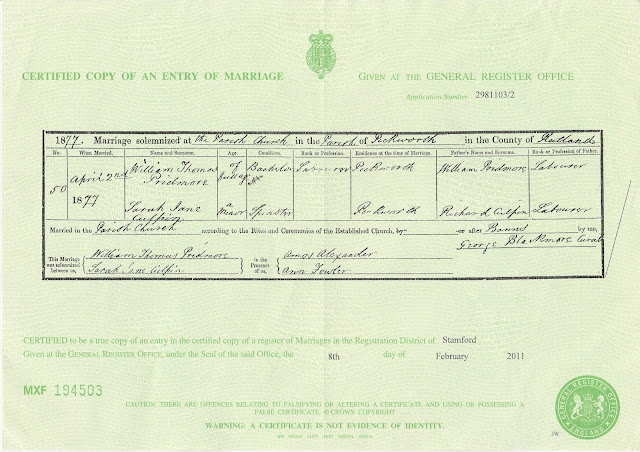 CERTIFIED COPY OF AN ENTRY OF MARRIAGE
GIVEN AT THE GENERAL REGISTER OFFICE
Application Number 2981103/2
1877. Marriage solemnized at the Parish Church in the Parish of Pickworth in the County of Rutland
No. When Married. Name and Surname. Age. Condition. Rank or Profession. Residence at the time of Marriage. Father's Name and Surname. Rank or Profession of Father.
50 April 2nd 1877 William Thomas Pridmore of full age Bachelor Pickworth William Pridmore Labourer
Sarah Jane Culpin a Minor Spinster Pickworth Richard Culpin Labourer
Married in the Parish Church according to the Rites and Ceremonies of the Established Church, by or after Banns by me,
George Blackmore Curate
This Marriage was solemnized between us, William Thomas Pridmore Sarah Jane Culpin in the Presence of us, Amos Alexander Ann Fowler
CERTIFIED to be a true copy of an entry in the certified copy of a register of Marriages in the Registration District of Stamford
Given at the GENERAL REGISTER OFFICE, under the Seal of the said Office, the 8th day of February 2011
MXF 194503
CAUTION: THERE ARE OFFENCES RELATING TO FALSIFYING OR ALTERING A CERTIFICATE AND USING OR POSSESSING A
FALSE CERTIFICATE. © CROWN COPYRIGHT
WARNING: A CERTIFICATE IS NOT EVIDENCE OF IDENTITY.
GENERAL REGISTER OFFICE
ENGLAND
JW